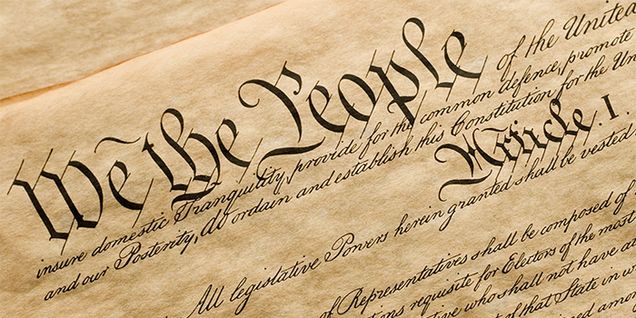 We the People of the United
insure domestic Tranquility, provide for the common defence, promote
and our Posterity, do ordain and establish this Constitution for the Un
Article. I.
All legislative Powers herein granted shall be vested
of Representatives shall be composed of
requisite for Electors of the most
who shall not have
of that State in
among